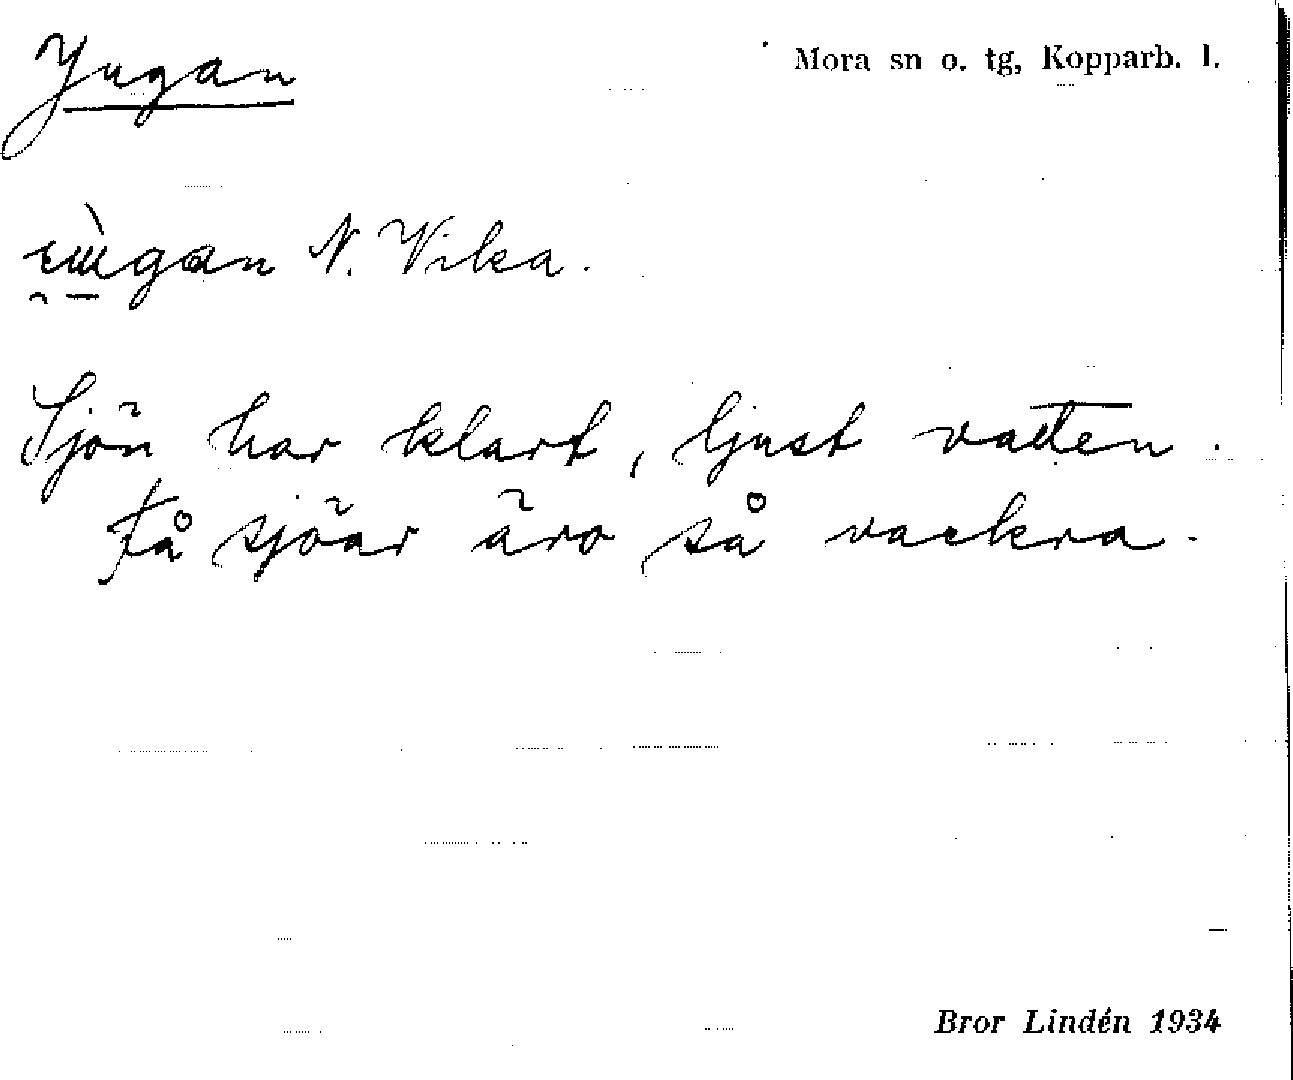 Jugan
Mora sn o. tg, Kopparb. l.
N. Vika.
Sjön har klart, ljust vatten.
Få sjöar äro så vackra.
Bror Lindén 1934